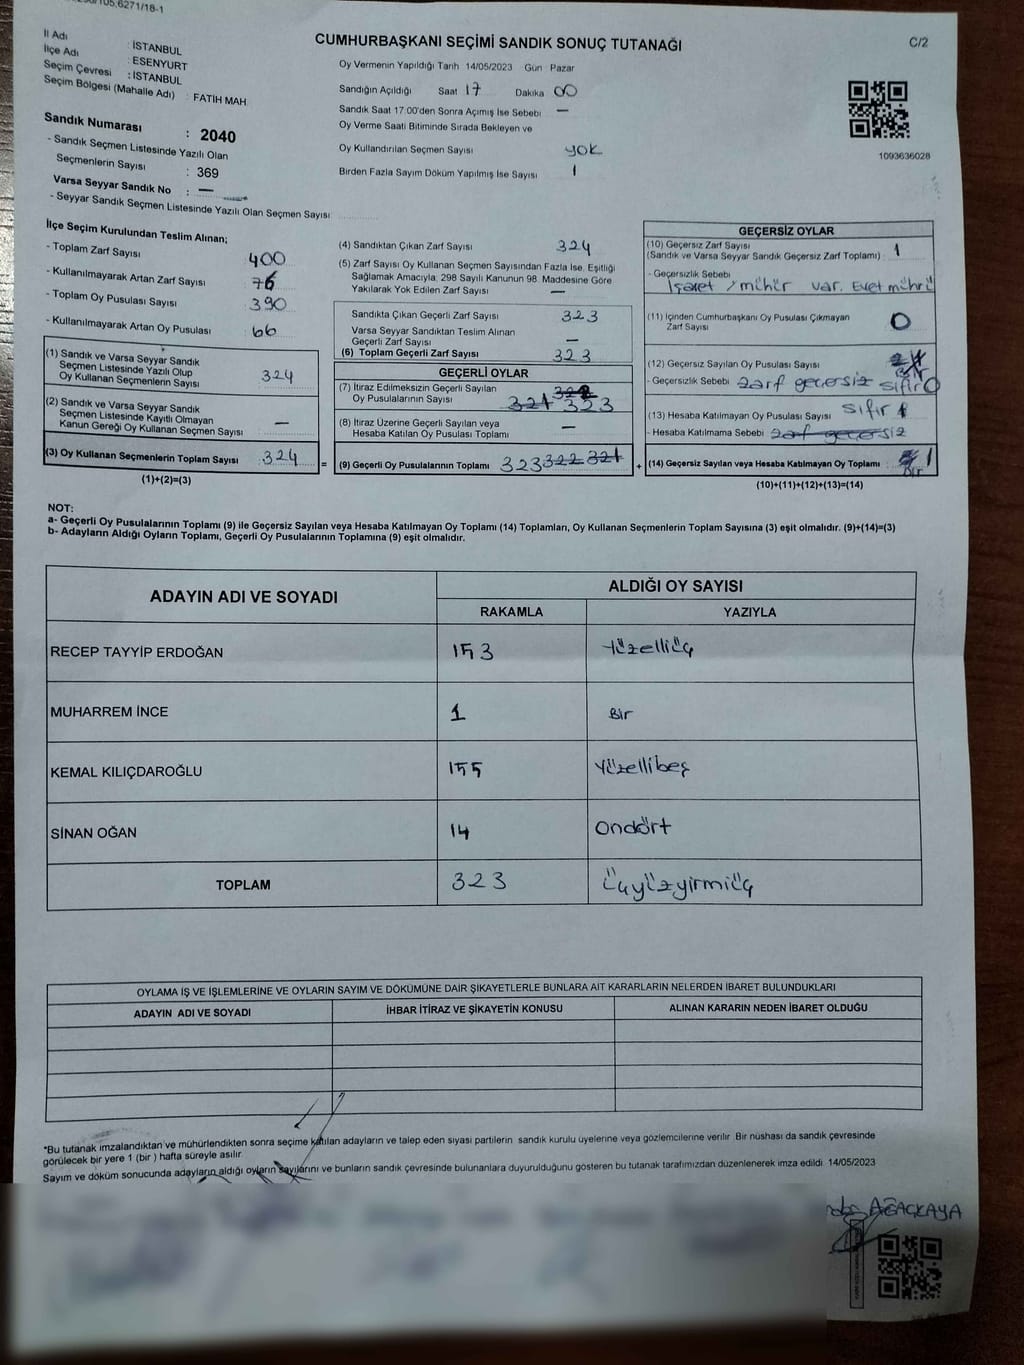 105,6271/18-1
İl Adı : İSTANBUL
İlçe Adı : ESENYURT
Seçim Çevresi : İSTANBUL
Seçim Bölgesi (Mahalle Adı) : FATİH MAH
Sandık Numarası : 2040
- Sandık Seçmen Listesinde Yazılı Olan
Seçmenlerin Sayısı : 369
Varsa Seyyar Sandık No : —
- Seyyar Sandık Seçmen Listesinde Yazılı Olan Seçmen Sayısı
CUMHURBAŞKANI SEÇİMİ SANDIK SONUÇ TUTANAĞI
C/2
Oy Vermenin Yapıldığı Tarih 14/05/2023 Gün Pazar
Sandığın Açıldığı Saat 17 Dakika 00
Sandık Saat 17:00'den Sonra Açımış İse Sebebi —
Oy Verme Saati Bitiminde Sırada Bekleyen ve
Oy Kullandırılan Seçmen Sayısı yok
Birden Fazla Sayım Döküm Yapılmış İse Sayısı 1
1093636028
İlçe Seçim Kurulundan Teslim Alınan;
- Toplam Zarf Sayısı 400
- Kullanılmayarak Artan Zarf Sayısı 76
- Toplam Oy Pusulası Sayısı 390
- Kullanılmayarak Artan Oy Pusulası 66
(1) Sandık ve Varsa Seyyar Sandık
Seçmen Listesinde Yazılı Olup
Oy Kullanan Seçmenlerin Sayısı 324
(2) Sandık ve Varsa Seyyar Sandık
Seçmen Listesinde Kayıtlı Olmayan
Kanun Gereği Oy Kullanan Seçmen Sayısı —
(3) Oy Kullanan Seçmenlerin Toplam Sayısı 324
(1)+(2)=(3)
=
(4) Sandıktan Çıkan Zarf Sayısı 324
(5) Zarf Sayısı Oy Kullanan Seçmen Sayısından Fazla İse, Eşitliği
Sağlamak Amacıyla, 298 Sayılı Kanunun 98. Maddesine Göre
Yakılarak Yok Edilen Zarf Sayısı —
Sandıkta Çıkan Geçerli Zarf Sayısı 323
Varsa Seyyar Sandıktan Teslim Alınan
Geçerli Zarf Sayısı —
(6) Toplam Geçerli Zarf Sayısı 323
GEÇERLİ OYLAR
(7) İtiraz Edilmeksizin Geçerli Sayılan 322
Oy Pusulalarının Sayısı 321 323
(8) İtiraz Üzerine Geçerli Sayılan veya
Hesaba Katılan Oy Pusulası Toplamı —
(9) Geçerli Oy Pusulalarının Toplamı 323 322 321
+
GEÇERSİZ OYLAR
(10) Geçersiz Zarf Sayısı 1
(Sandık ve Varsa Seyyar Sandık Geçersiz Zarf Toplamı) :
- Geçersizlik Sebebi
İşaret / mühür var. Evet mührü
(11) İçinden Cumhurbaşkanı Oy Pusulası Çıkmayan
Zarf Sayısı 0
(12) Geçersiz Sayılan Oy Pusulası Sayısı
- Geçersizlik Sebebi zarf geçersiz sıfır 0
(13) Hesaba Katılmayan Oy Pusulası Sayısı sıfır
- Hesaba Katılmama Sebebi zarf geçersiz
(14) Geçersiz Sayılan veya Hesaba Katılmayan Oy Toplamı : 1
Bir
(10)+(11)+(12)+(13)=(14)
NOT:
a- Geçerli Oy Pusulalarının Toplamı (9) ile Geçersiz Sayılan veya Hesaba Katılmayan Oy Toplamı (14) Toplamları, Oy Kullanan Seçmenlerin Toplam Sayısına (3) eşit olmalıdır. (9)+(14)=(3)
b- Adayların Aldığı Oyların Toplamı, Geçerli Oy Pusulalarının Toplamına (9) eşit olmalıdır.
ADAYIN ADI VE SOYADI
ALDIĞI OY SAYISI
RAKAMLA YAZIYLA
RECEP TAYYİP ERDOĞAN 153 Yüzelliüç
MUHARREM İNCE 1 Bir
KEMAL KILIÇDAROĞLU 155 Yüzellibeş
SİNAN OĞAN 14 Ondört
TOPLAM 323 Üçyüzyirmiüç
OYLAMA İŞ VE İŞLEMLERİNE VE OYLARIN SAYIM VE DÖKÜMÜNE DAİR ŞİKAYETLERLE BUNLARA AİT KARARLARIN NELERDEN İBARET BULUNDUKLARI
ADAYIN ADI VE SOYADI İHBAR İTİRAZ VE ŞİKAYETİN KONUSU ALINAN KARARIN NEDEN İBARET OLDUĞU
*Bu tutanak imzalandıktan ve mühürlendikten sonra seçime katılan adayların ve talep eden siyasi partilerin sandık kurulu üyelerine veya gözlemcilerine verilir. Bir nüshası da sandık çevresinde
görülecek bir yere 1 (bir ) hafta süreyle asılır.
Sayım ve döküm sonucunda adayların aldığı oyların sayılarını ve bunların sandık çevresinde bulunanlara duyurulduğunu gösteren bu tutanak tarafımızdan düzenlenerek imza edildi. 14/05/2023
AĞAÇKAYA